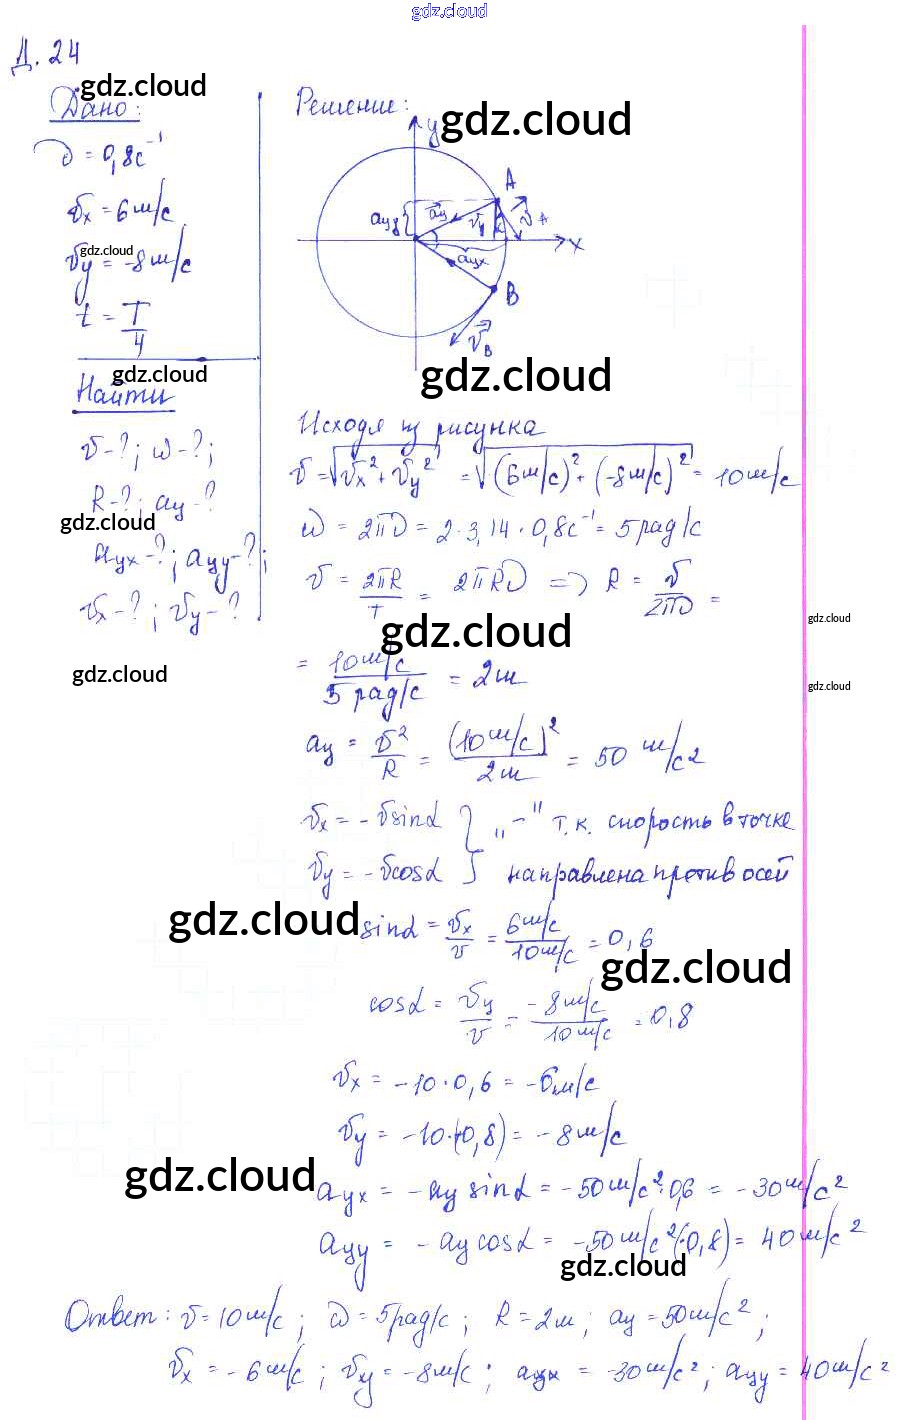 gdz.cloud
Д. 24
gdz.cloud
Дано:
ν = 0,8 с⁻¹
vx = 6 м/с
gdz.cloud
vy = -8 м/с
t = T/4
gdz.cloud
Найти
v-?; ω-?;
R-?; aц-?
gdz.cloud
aцx-?; aцy-?;
vx-?; vy-?
gdz.cloud
Решение:
gdz.cloud
y
A
aцy
aц
vy
vA
x
aцx
B
vB
gdz.cloud
Исходя из рисунка
v = √(vx² + vy²) = √((6 м/с)² + (-8 м/с)²) = 10 м/с
ω = 2πν = 2·3,14·0,8 с⁻¹ = 5 рад/с
v = 2πR/T = 2πRν => R = v/2πν =
gdz.cloud
gdz.cloud
gdz.cloud
= 10 м/с / 5 рад/с = 2 м
aц = v²/R = (10 м/с)²/2 м = 50 м/с²
vx = -v sinα } „-" т.к. скорость в точке
vy = -v cosα } направлена против осей
gdz.cloud
sinα = vx/v = 6 м/с / 10 м/с = 0,6
gdz.cloud
cosα = vy/v = -8 м/с / 10 м/с = 0,8
vx = -10·0,6 = -6 м/с
vy = -10·(-0,8) = -8 м/с
gdz.cloud
aцx = -aц sinα = -50 м/с²·0,6 = -30 м/с²
aцy = -aц cosα = -50 м/с²(-0,8) = 40 м/с²
gdz.cloud
Ответ: v = 10 м/с; ω = 5 рад/с; R = 2 м; aц = 50 м/с²;
vx = -6 м/с; vy = -8 м/с; aцx = -30 м/с²; aцy = 40 м/с²